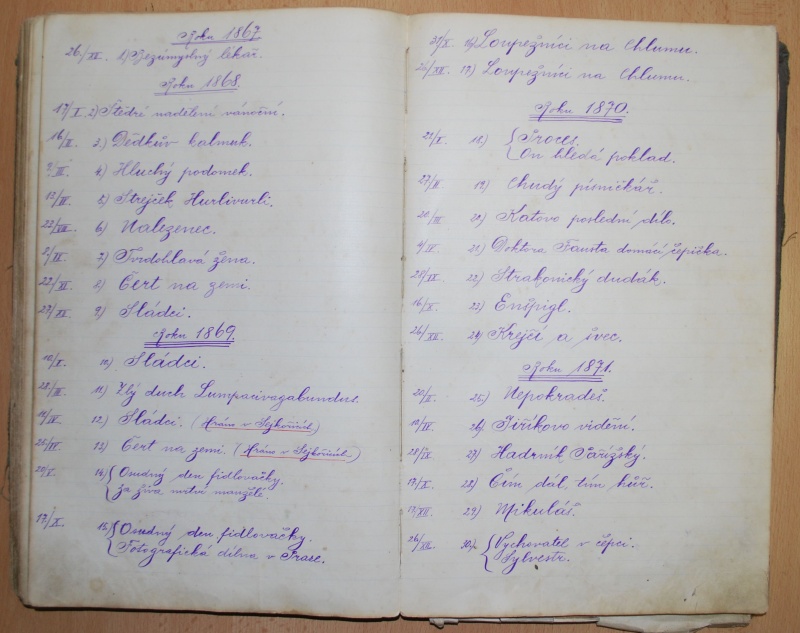 Roku 1867.
26./XII. 1) Bezúmyslný lékař.
Roku 1868.
17/I. 2) Štědré nadělení vánoční.
16/II. 3) Dědkův kalmuk.
9/III. 4) Hluchý podomek.
13/IV. 5) Strejček Hurlivurli.
22/VIII. 6) Nalezenec.
7) Tvrdohlavá žena.
22/XI. 8) Čert na zemi.
27/XII. 9) Sládci.
Roku 1869.
10/I. 10) Sládci.
28/III. 11) Zlý duch Lumpacivagabundus.
12) Sládci. (Hráno v Sejkořině)
25/IV. 13) Čert na zemi. (Hráno v Sejkořině)
14) Osudný den fidlovačky.
Za živa mrtví manželé.
17/X. 15) Osudný den fidlovačky.
Fotografická dílna v Praze.
16) Loupežníci na Chlumu.
17) Loupežníci na Chlumu.
Roku 1870.
18) Proces.
On hledá poklad.
27/II. 19) Chudý písničkář.
20/III. 20) Katovo poslední dílo.
21) Doktora Fausta domácí čepička.
22) Strakonický dudák.
16/X. 23) Enšpígl.
26/XII. 24) Krejčí a švec.
Roku 1871.
20/II. 25) Nepokradeš.
10/IV. 26) Jiříkovo vidění.
28/V. 27) Hadrník Pařížský.
28) Čím dál, tím hůř.
29) Mikuláš.
26/XII. 30) Vychovatel v čepci.
Sylvestr.